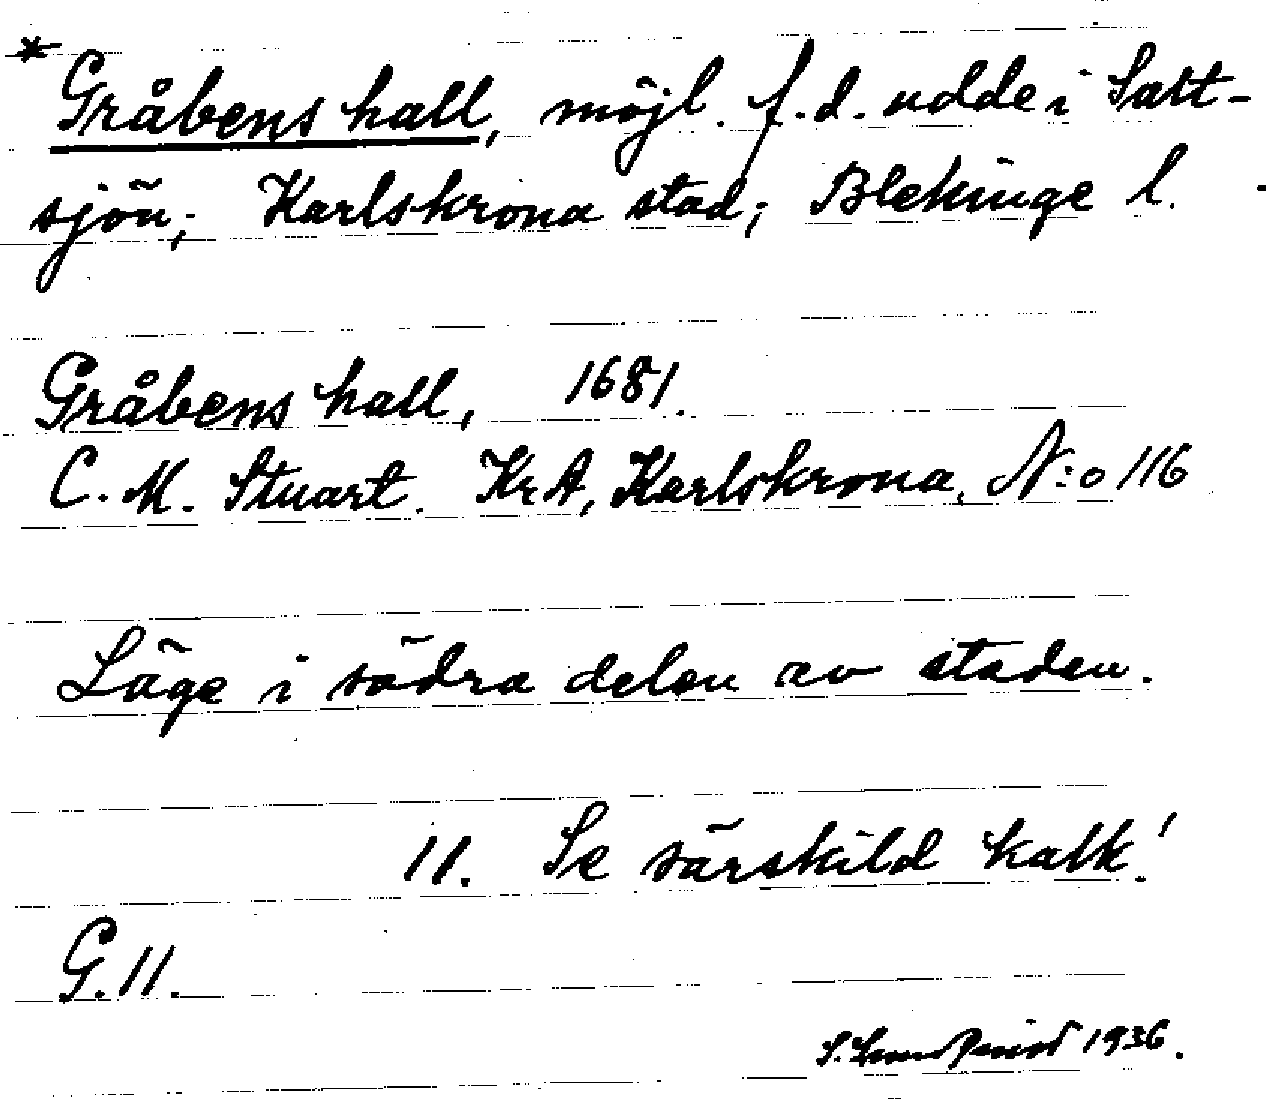 * Gråbens hall, möjl. f.d. udde i Salt-
sjön; Karlskrona stad; Blekinge l.
Gråbens hall, 1681.
C. M. Stuart. KrA, Karlskrona, N:o 116
Läge i södra delen av staden.
11. Se särskild kalk!
G. 11.
1936.